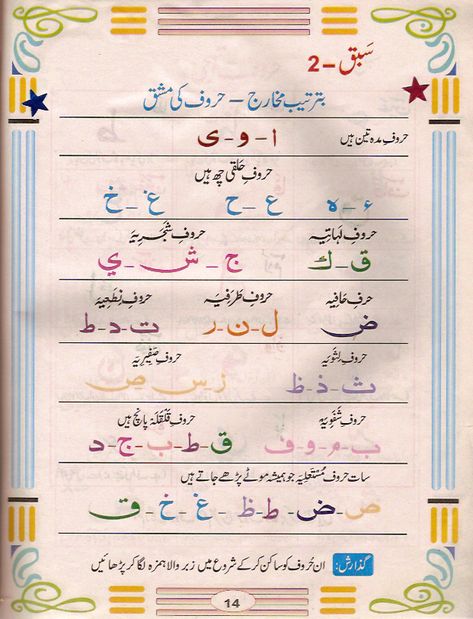 سَبق – 2
بترتیبِ مخارج – حروف کی مشق
حروفِ مدہ تین ہیں ا - و - ی
حروفِ حلقی چھ ہیں
ء - ہ ع - ح غ - خ
حروفِ لہاتیہ حروفِ شجریہ
ق - ك ج - ش - ي
حرفِ حافیہ حروفِ طرفیہ حروفِ نطعیہ
ض ل - ن - ر ت - د - ط
حروفِ لثویہ حروفِ صفیریہ
ث - ذ - ظ ز س ص
حروفِ شفویہ حروفِ قلقلہ پانچ ہیں
ب - م - و - ف ق - ط - ب - ج - د
سات حروف مستعلیہ جو ہمیشہ موٹے پڑھے جاتے ہیں
ص - ض - ط - ظ - غ - خ - ق
گذارش: ان حُروف کو ساکن کر کے شروع میں زبر والا ہمزہ لگا کر پڑھائیں
14